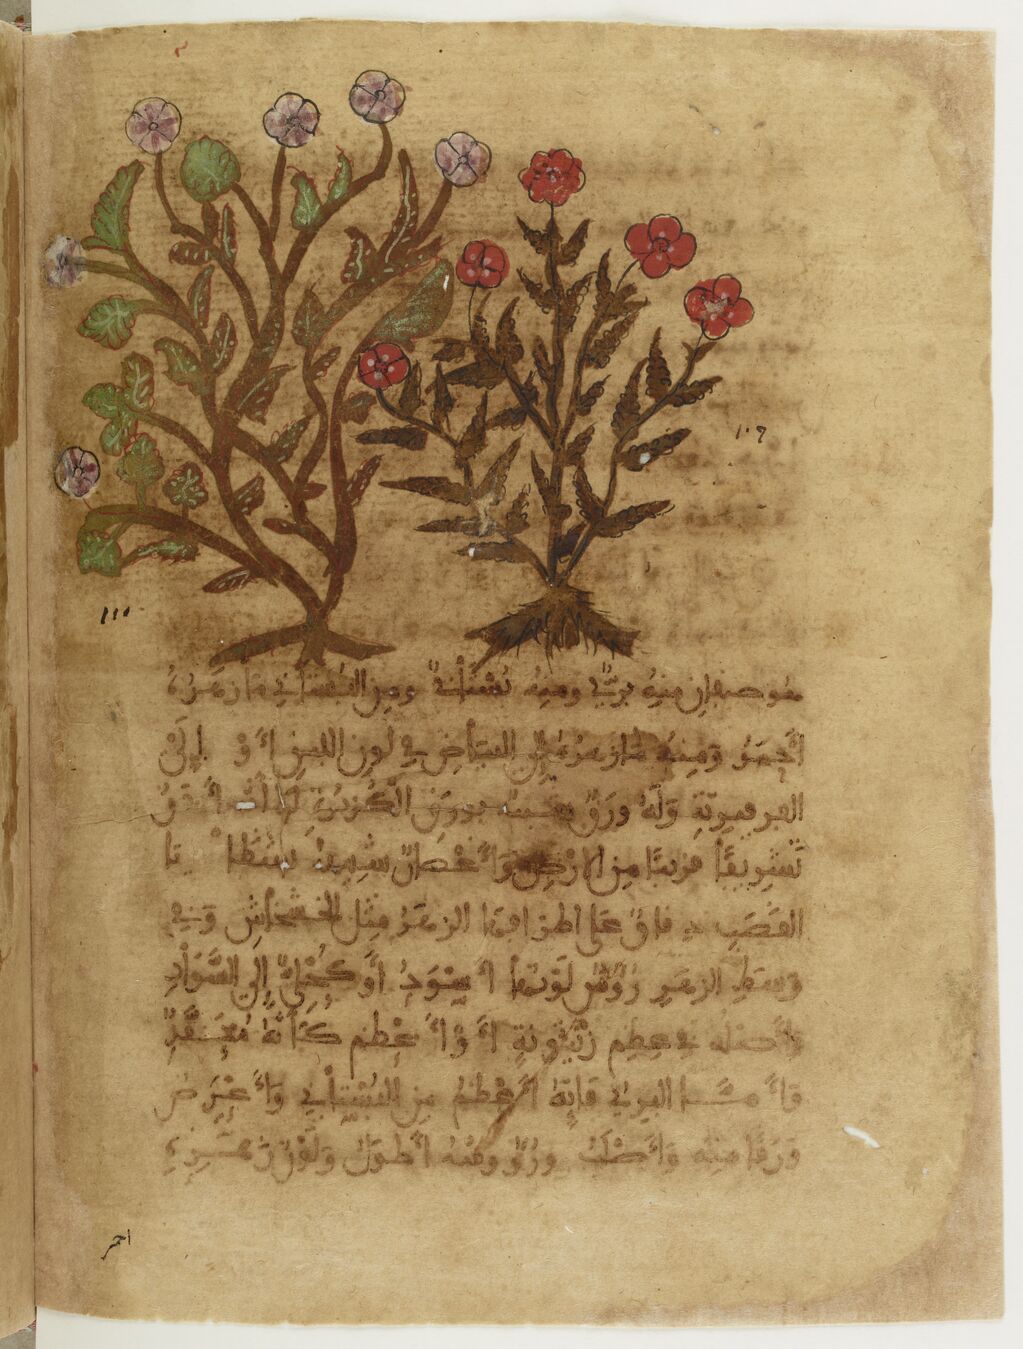 ١٠٩
١١٠
هو صنفان منه بَرِّيّ ومنه بُسْتَانيّ ومن البُستاني ما زهرهُ
أحمَرُ ومنهُ ما زهرهُ إلى البيَاضِ في لَون اللبن أَوْ إلى
الفرفيريّةِ وَلَهُ وَرَقٌ شبيهٌ بورق الكُزبُرَةِ إلا أنه أدَقُّ
تَشرِيفًا قَريبًا من الأرْضِ وَأَغْصَانٌ
القَصَبِ دِقاقٌ على أطرافِهَا الزهرُ مِثل الخشخاشِ وَفي
وَسَطِ الزهرِ رُؤوسٌ لَونُهَا أسْوَدُ أَو كُحْليٌّ إلى السَّوَادِ
وأصلهُ في عِظمِ زَيْتُونةٍ أَوْ أَعْظم كأنَّهُ مُعَقَّدٌ
وَأَمَّا البرّي فَإنَّهُ أعْظَمُ من البُسْتَاني وَأَعْرَضُ
وَرَقًا منه وَأصْلَبُ ورُؤوسُهُ أطوَلُ وَلَوْنُ زَهرِهِ
احمر